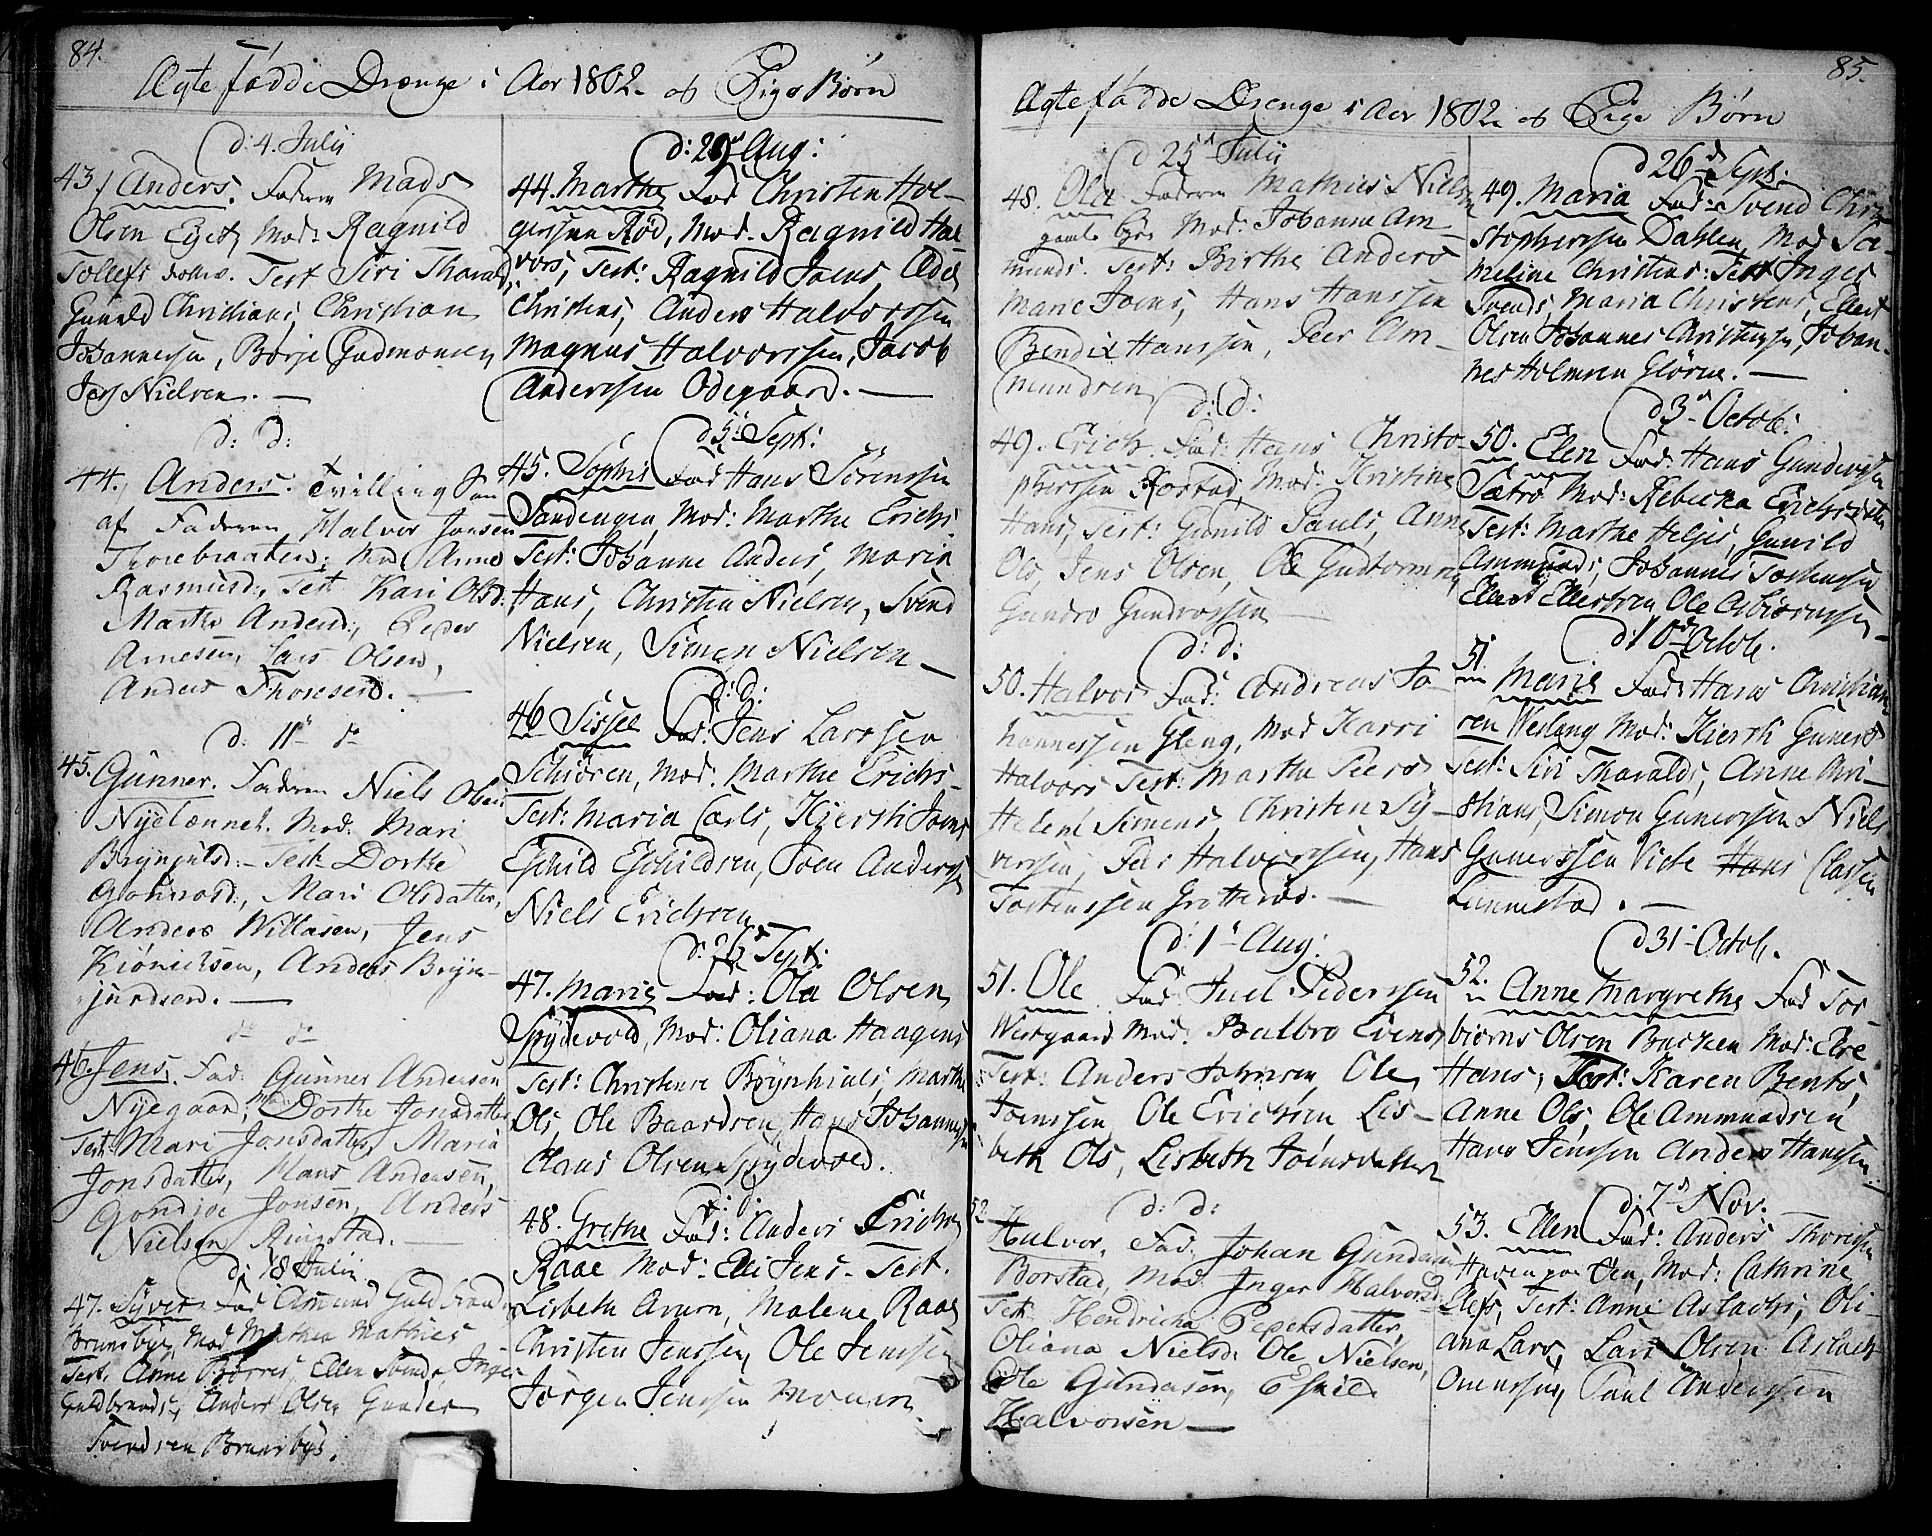 84.
Ægte fødde Drænge i Aar 1802. og Pige Børn
d: 4. Julij
43. Anders. Faderen Mads
Olsen Mod: Ragnild
Tollefs Test Siri Tharald
Gunild Christians, Christian
Johannessen, Børje Gudmonsen
Nielsen. —
d: d:
44. Anders. Tvilling Søn
af Faderen Halvor Jonsen
Thorebraaten, Mod Anne
Rasmusd:, Test Kari Olsd:
Marthe Andersd:, Peder
Arnesen, Lars Olsen,
Anders Thoresen. —
d: 11 do
45. Gunner. Faderen Niels Olsen
Mod. Mari
Brynjulsd:. Test Dorthe
Mari Olsdatter,
Anders Willasen, Jens
Anders Bryn-
julfsen. —
do do
46. Jens. Fad: Gunner Andersen
Nyegaard, Mod: Dorthe Jonsdatter
Test: Mari Jonsdatter, Maria
Jonsdatter, Hans Andersen,
Jonsen, Anders
Nielsen Ringstad. —
d: 18 Julij
47. Syver Fad Amund Guldbrands.
Brunsbye, Mod Mathias
Test. Anne Børres, Ellen Svends, Inger
Guldbrands, Anders Olsen Gunder
Svendsen Brunsbye.
d: 29 Aug:
44. Marthe Fad Christen Hol-
gerssen Rød, Mod. Ragnild Hal
vors, Test: Ragnild Joens,
Christens, Anders Halvorssen
Magnus Halvorssen, Jacob
Anderssen Odegaard. —
d 5 Sept:
45. Sophie Fad Hans Sörenssen
Sandengen, Mod: Marthe Erichs
Test: Johanne Anders, Maria
Hans, Christen Nielsen, Svend
Nielsen, Simen Nielsen —
d: d:
46 Sissel Fad: Jens Larssen
Schiören, Mod: Marthe Erichs-
Test: Maria Carls, Kjersti Joens
Eschild Eschildsen, Joen Anderssen
Niels Erichsen —
d: 26 Sept:
47. Marie Fad: Ola Olsen
Spydevold, Mod: Oliana Haagens
Test: Christense Marthe
Ols, Ole Baardsen, Hans Johannessen
Claus Olsen Spydevold.
d: d:
48. Grethe Fad: Anders Erichsen
Raae Mod: Elli Jens - Test.
Lisbeth Malene Raae
Christen Jenssen, Ole Jenssen
Jörgen Jenssen
85.
Ægte fødde Drenge i Aar 1802 og Pige Børn
d 25 Julij
48. Ola Faderen Mathies Nielsen
Mod: Johanne Am-
munds. Test: Birthe Anders
Marie Joens, Hans Hanssen
Bendix Hanssen, Peer Am-
mundsen
d: d:
49. Erich Fad: Hans Christo-
phersen Rostad, Mod: Kristine
Hans, Test: Gunild Pauls, Anne
Ols, Jens Olsen, Ole Guttormsen,
Gundro Gundrossen —
d: d:
50. Halvor Fad: Andreas Jo-
hannessen Gleng, Mod Karri
Halvors Test: Marthe Peers
Helene Simens, Christen Sy-
verssen, Peer Halvorssen, Hans
Tostenssen Grotterød. —
d: 1 Aug:
51. Ole Fad: Juel Pederssen
Westgaard Mod: Balbro Evens,
Test: Anders Johnsen Ole
Joenssen, Ole Erichsen Lis-
beth Ols, Lisbeth Joensdatter
d: d:
52. Halvor. Fad: Johan Gundersen
Borstad, Mod Inger Halvorsd:
Test: Hendricha Pedersdatter,
Oliana Nielsd: Ole Nielsen,
Ole Gundersen, Eskild
Halvorsen —
d 26 Sept:
49. Maria Fad: Svend Chri-
stophersen Dahlen, Mod
Christens: Test Inger
Svends, Maria Christens, Ellert
Olsen Johannes Christensen, Johan-
nes Holmsen Glörne. —
d 3 Octob:
50. Elen Fad: Hans Gunderssen
Sætre Mod: Rebecka Erichsdatter
Test: Marthe Heljes, Gunild
Ammunds, Johannes Tostenssen
Ellert Ellertsen Ole Asbiörnssen
d: 10 Octob.
51. Marie Fad: Hans Christian-
sen Weslang Mod: Kjersti Guners
Test: Siri Tharalds, Anne Chri-
stians, Simon Gunerssen Niels
Gunerssen Hans Classen
Lunnestad. —
d 31 Octob.
52. Anne Margrethe Fad Tor-
biörns Olsen Mod: Else
Hans, Test: Karen Bents,
Anne Ols, Ole Ammundsen
Hans Jenssen Anders Hanssen.
d: 7 Nov.
53. Ellen Fad: Anders Thorissen
Mod: Cathrine
Olefs, Test: Anne Aslachs, Oli-
ana Lars, Lars Olsen Aslach
Paul Anderssen